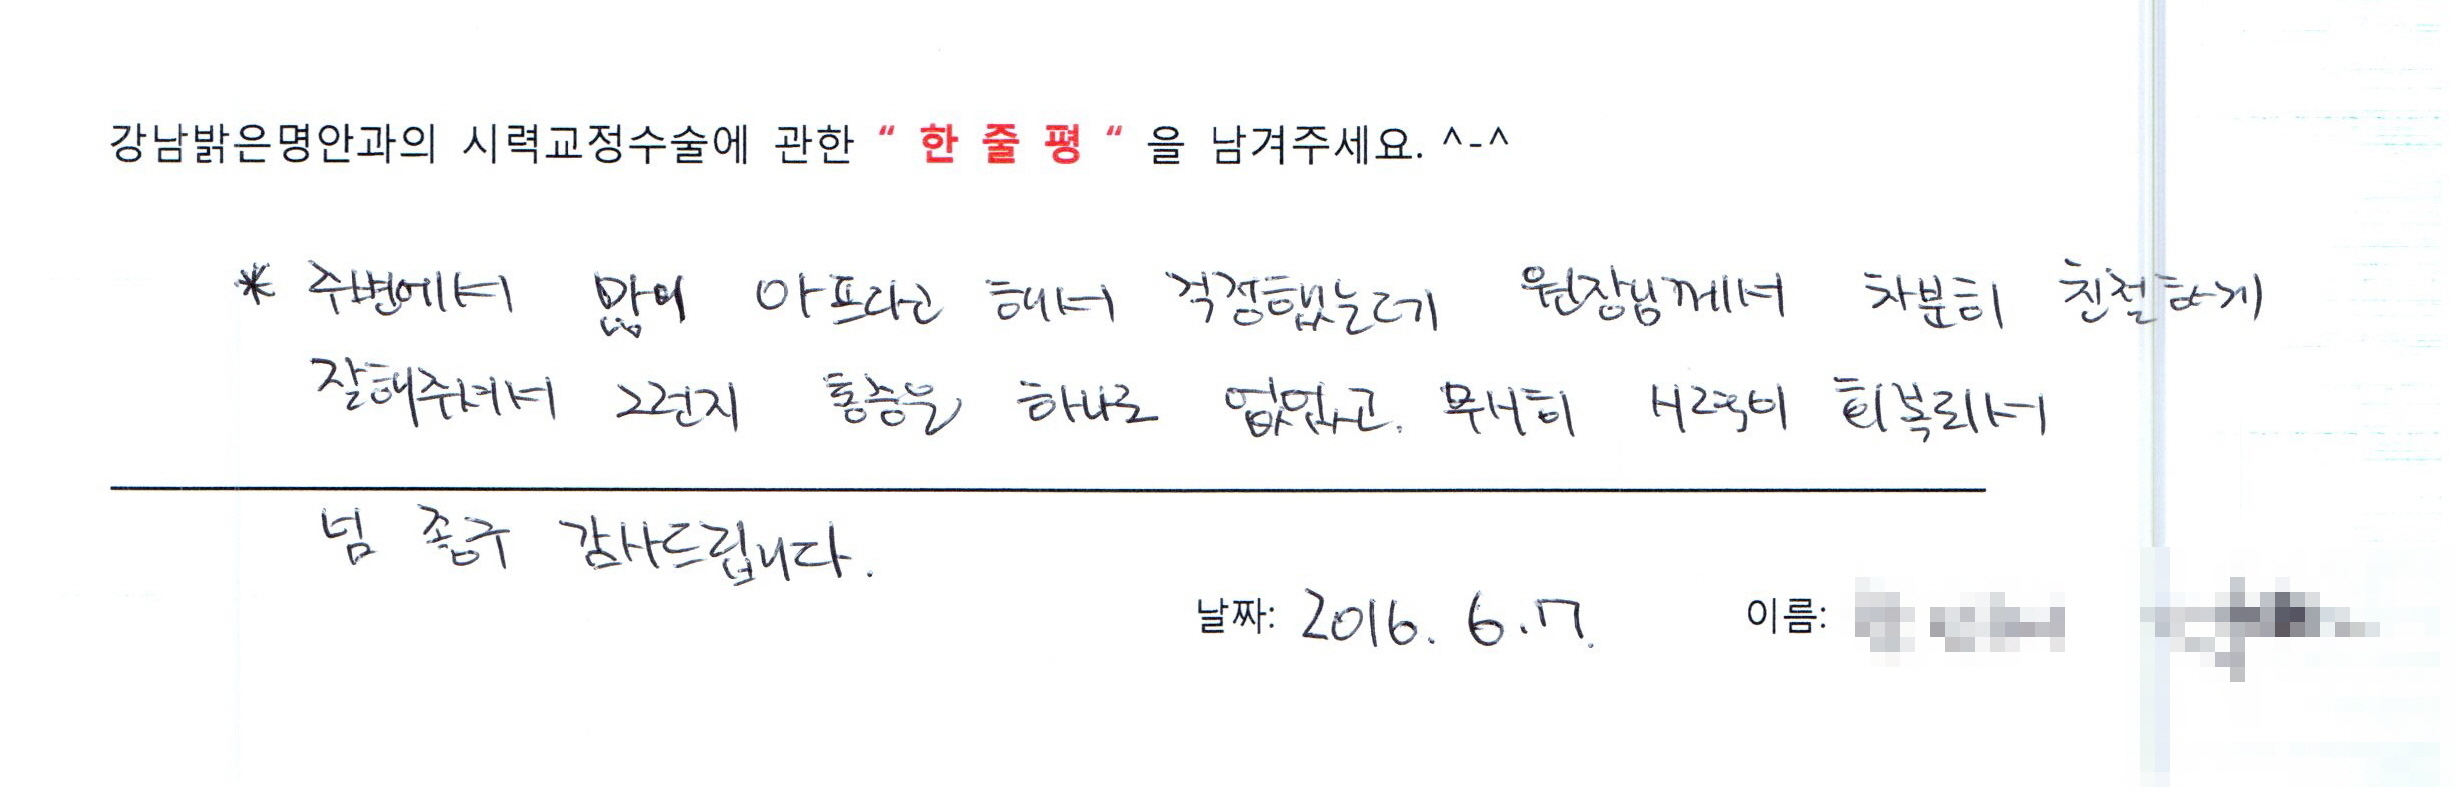 강남밝은명안과의 시력교정수술에 관한 “ 한 줄 평 “ 을 남겨주세요. ^-^
* 주변에서 많이 아프다고 해서 걱정했는데 원장님께서 차분히 친절하게
잘해주셔서 그런지 통증은 하나도 없었고. 무사히 시력이 회복되서
넘 좋구 감사드립니다.
날짜: 2016. 6. 17. 이름: